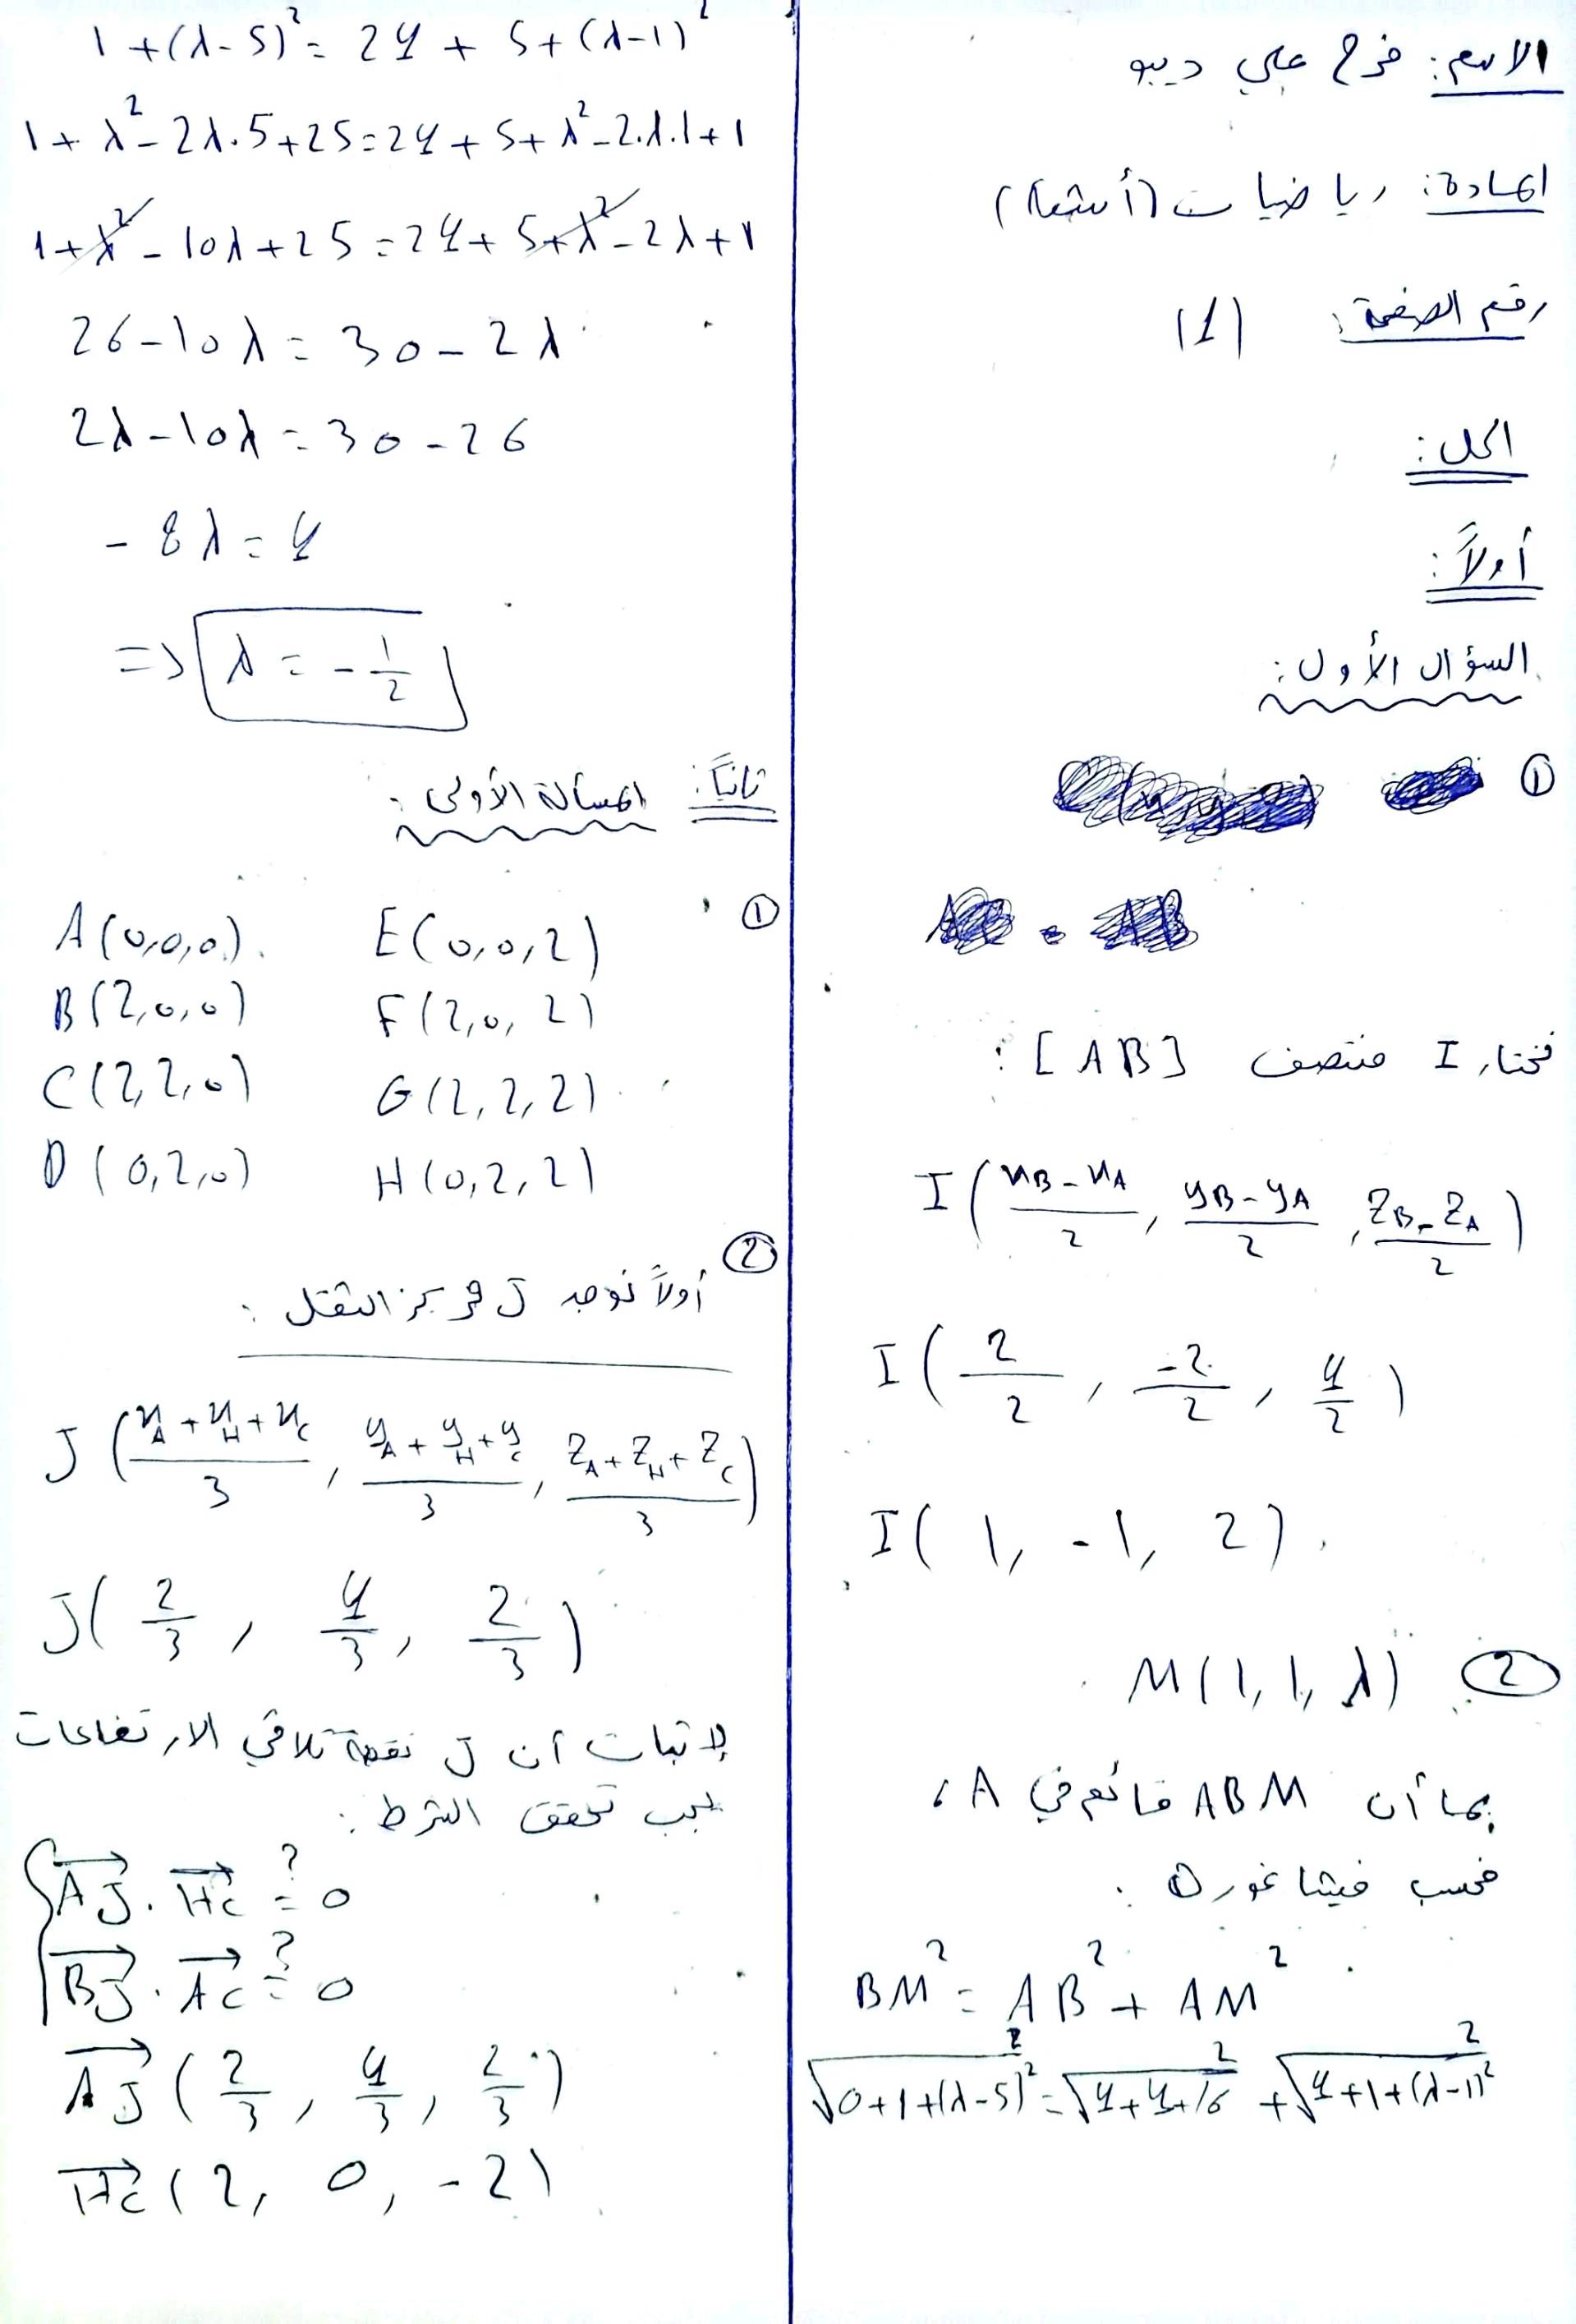 الاسم: فرح علي ديبو
المادة: رياضيات (أشعة)
رقم الصفحة: (1)
الحل:
أولاً:
السؤال الأول:
①
نختار I منتصف [AB] :
I ( (x_B - x_A)/2 , (y_B - y_A)/2 , (z_B - z_A)/2 )
I ( 2/2 , -2/2 , 4/2 )
I ( 1, -1, 2 ).
② M(1, 1, λ)
بما أن ABM قائم في A ،
فحسب فيثاغورث :
BM² = AB² + AM²
√(0+1+(λ-5)²)² = √(4+4+16)² + √(4+1+(λ-1)²)²
1 + (λ-5)² = 24 + 5 + (λ-1)²
1 + λ² - 2λ.5 + 25 = 24 + 5 + λ² - 2.λ.1 + 1
1 + λ² - 10λ + 25 = 24 + 5 + λ² - 2λ + 1
26 - 10λ = 30 - 2λ
2λ - 10λ = 30 - 26
- 8λ = 4
=> λ = - 1/2
ثانياً: المسألة الأولى :
①
A(0,0,0) E(0,0,2)
B(2,0,0) F(2,0,2)
C(2,2,0) G(2,2,2)
D(0,2,0) H(0,2,2)
②
أولاً نوجد J مركز الثقل :
J ( (x_A + x_H + x_C)/3 , (y_A + y_H + y_C)/3 , (z_A + z_H + z_C)/3 )
J ( 2/3 , 4/3 , 2/3 )
لإثبات أن J نقطة تلاقي الارتفاعات
يجب تحقق الشرط :
{ AJ→ . HC→ =? 0
BJ→ . AC→ =? 0
AJ→ ( 2/3 , 4/3 , 2/3 )
HC→ ( 2, 0, -2 )